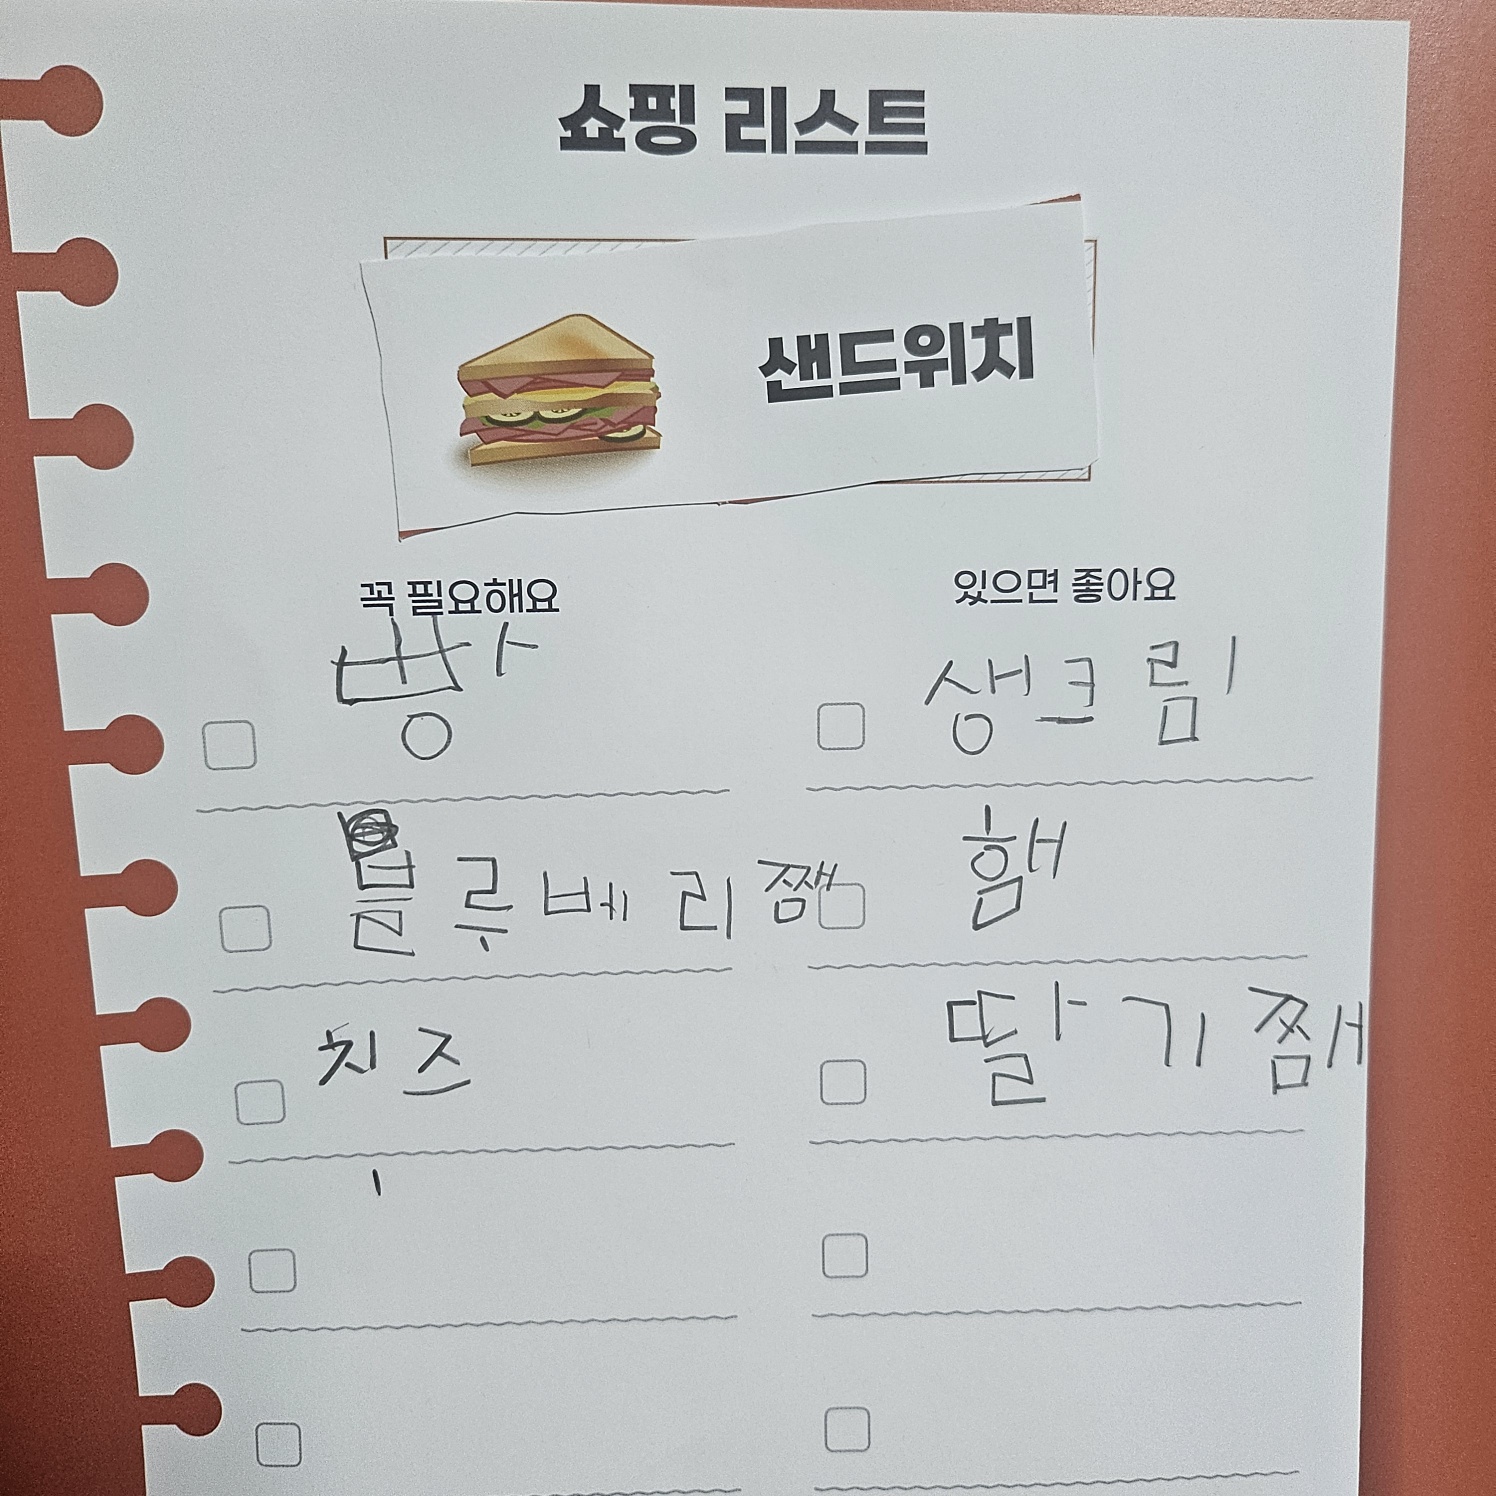 쇼핑 리스트
샌드위치
꼭 필요해요
빵
블루베리쨈
치즈
있으면 좋아요
생크림
햄
딸기쨈